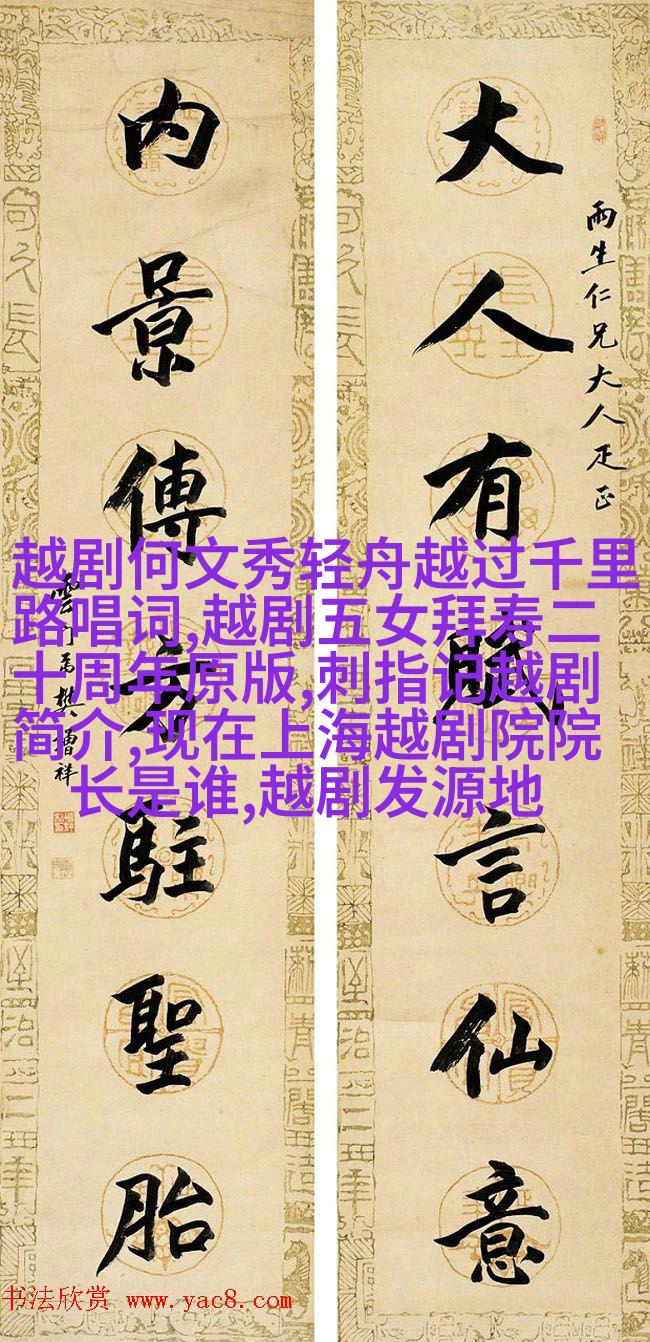 雨生仁兄大人疋正
大人有賦言仙意
内景傳方駐聖胎
雲門弟樊增祥
越剧何文秀轻舟越过千里
路唱词,越剧五女拜寿二
十周年原版,刺指记越剧
简介,现在上海越剧院院
长是谁,越剧发源地
书法欣赏 www.yac8.com